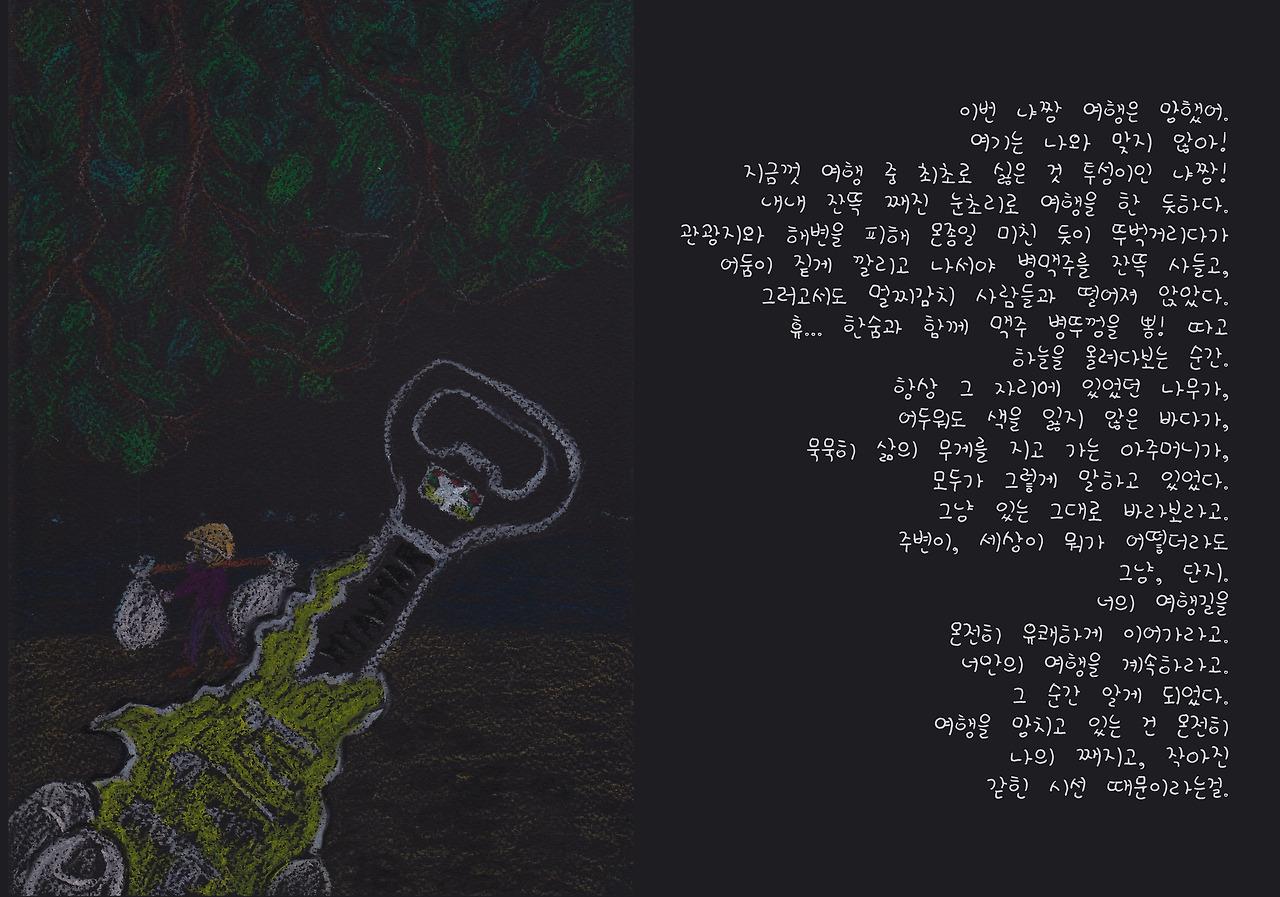 이번 냐짱 여행은 망했어.
여기는 나와 맞지 않아!
지금껏 여행 중 최초로 싫은 것 투성이인 냐짱!
내내 잔뜩 째진 눈초리로 여행을 한 듯하다.
관광지와 해변을 피해 온종일 미친 듯이 뚜벅거리다가
어둠이 짙게 깔리고 나서야 병맥주를 잔뜩 사들고,
그러고서도 멀찌감치 사람들과 떨어져 앉았다.
휴... 한숨과 함께 맥주 병뚜껑을 뽕! 따고
하늘을 올려다보는 순간.
항상 그 자리에 있었던 나무가,
어두워도 색을 잃지 않은 바다가,
묵묵히 삶의 무게를 지고 가는 아주머니가,
모두가 그렇게 말하고 있었다.
그냥 있는 그대로 바라보라고.
주변이, 세상이 뭐가 어떻더라도
그냥, 단지.
너의 여행길을
온전히 유쾌하게 이어가라고.
너만의 여행을 계속하라고.
그 순간 알게 되었다.
여행을 망치고 있는 건 온전히
나의 째지고, 작아진
갇힌 시선 때문이라는걸.
MYANMAR